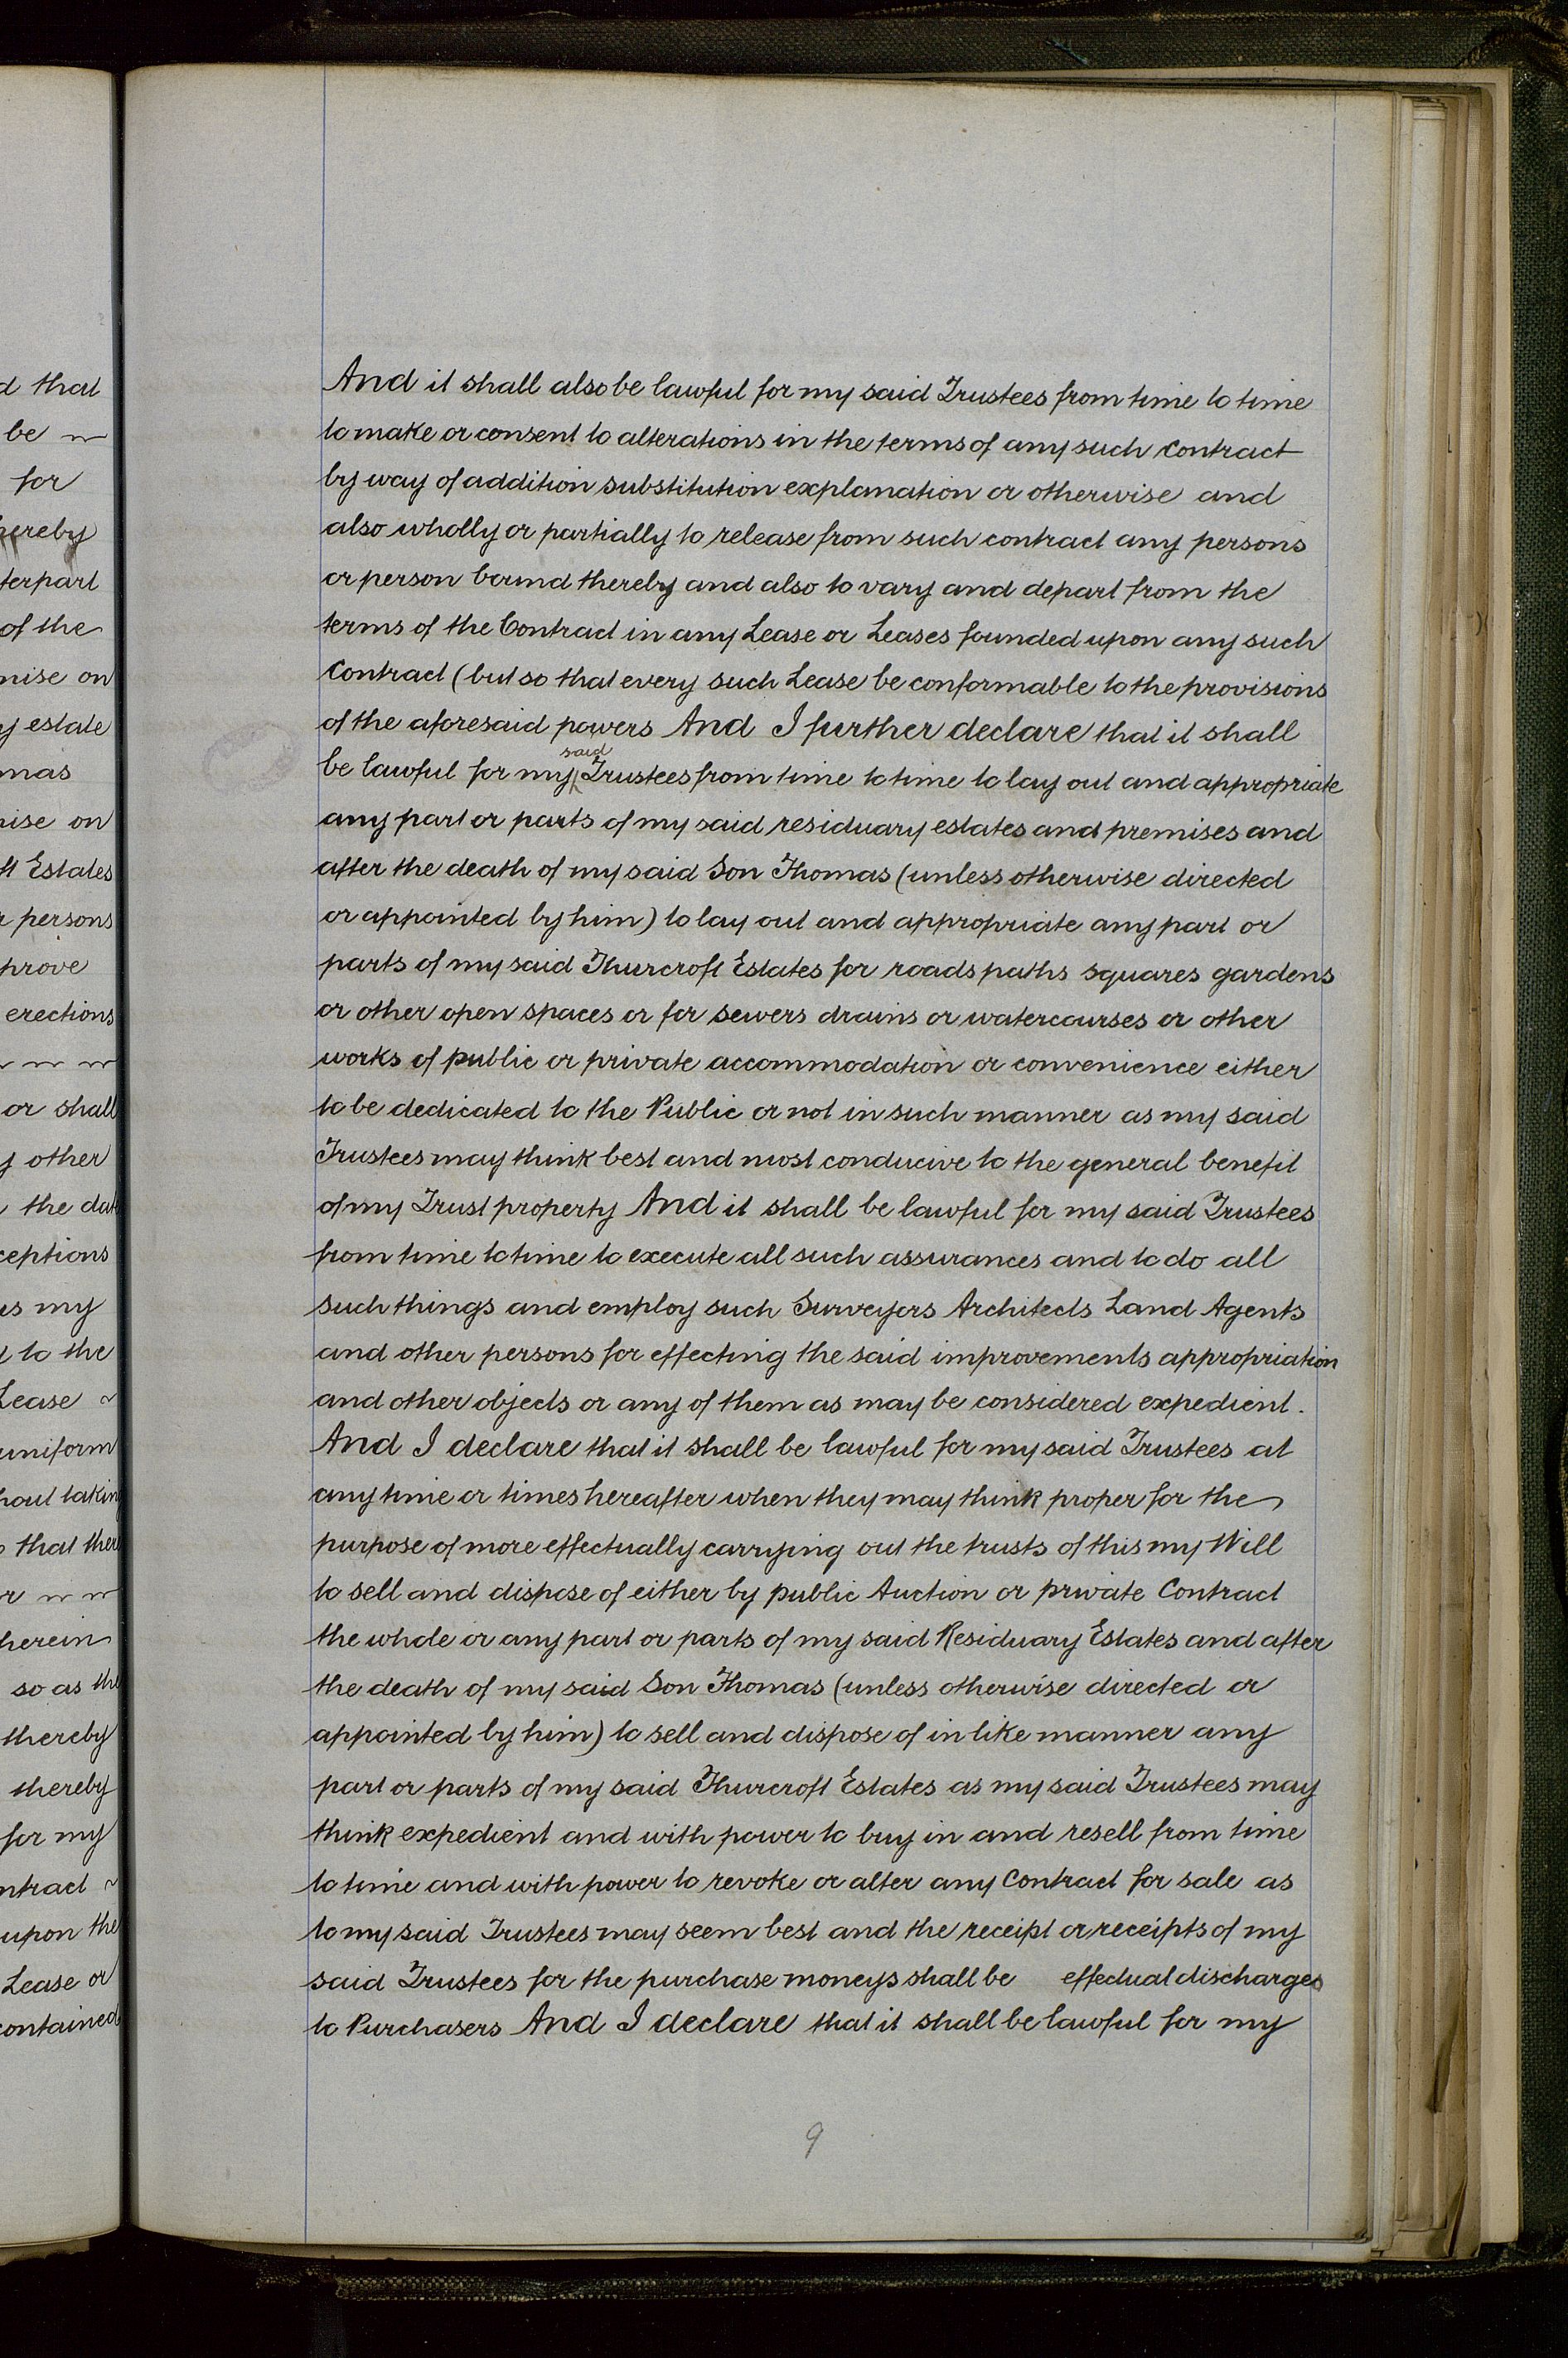 d that
be
for
hereby
terpart
of the
mise on
y estate
mas
nise on
ft Estates
r persons
prove
erections
or shall
y other
the dat
ceptions
as my
d to the
Lease
uniform
hout takin
that ther
r
herein
so as the
thereby
thereby
for my
ntract
upon the
Lease or
contained
And it shall also be lawful for my said Trustees from time to time
to make or consent to alterations in the terms of any such contract
by way of addition substitution explanation or otherwise and
also wholly or partially to release from such contract any persons
or person bound thereby and also to vary and depart from the
terms of the Contract in any Lease or Leases founded upon any such
Contract (but so that every such Lease be conformable to the provisions
of the aforesaid powers And I further declare that it shall
be lawful for my said Trustees from time to time to lay out and appropriate
any part or parts of my said residuary estates and premises and
after the death of my said Son Thomas (unless otherwise directed
or appointed by him) to lay out and appropriate any part or
parts of my said Thurcroft Estates for roads paths squares gardens
or other open spaces or for sewers drains or watercourses or other
works of public or private accommodation or convenience either
to be dedicated to the Public or not in such manner as my said
Trustees may think best and most conducive to the general benefit
of my Trust property And it shall be lawful for my said Trustees
from time to time to execute all such assurances and to do all
such things and employ such Surveyors Architects Land Agents
and other persons for effecting the said improvements appropriation
and other objects or any of them as may be considered expedient.
And I declare that it shall be lawful for my said Trustees at
any time or times hereafter when they may think proper for the
purpose of more effectually carrying out the trusts of this my Will
to sell and dispose of either by public Auction or private Contract
the whole or any part or parts of my said Residuary Estates and after
the death of my said Son Thomas (unless otherwise directed or
appointed by him) to sell and dispose of in like manner any
part or parts of my said Thurcroft Estates as my said Trustees may
think expedient and with power to buy in and resell from time
to time and with power to revoke or alter any Contract for sale as
to my said Trustees may seem best and the receipt or receipts of my
said Trustees for the purchase moneys shall be effectual discharges
to Purchasers And I declare that it shall be lawful for my
9